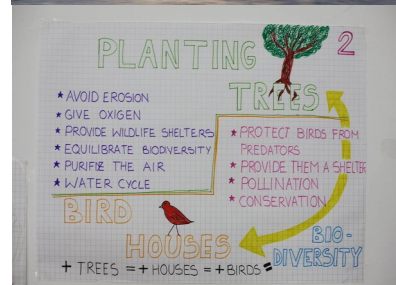 PLANTING
2
TREES
★ AVOID EROSION
★ GIVE OXIGEN
★ PROVIDE WILDLIFE SHELTERS
★ EQUILIBRATE BIODIVERSITY
★ PURIFIZ THE AIR
★ WATER CYCLE
★ PROTECT BIRDS FROM
PREDATORS
★ PROVIDE THEM A SHELTER
★ POLLINATION
★ CONSERVATION
BIRD
HOUSES
BIO-
DIVERSITY
+ TREES = + HOUSES = + BIRDS =